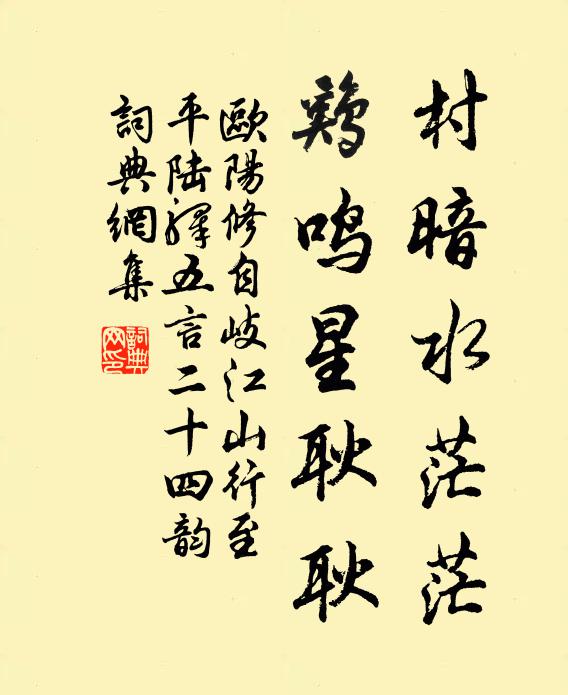 村暗水茫茫
鷄鸣星耿耿
歐陽修自岐江山行至
平陆驛五言二十四韵
詞典網集
詞典网印